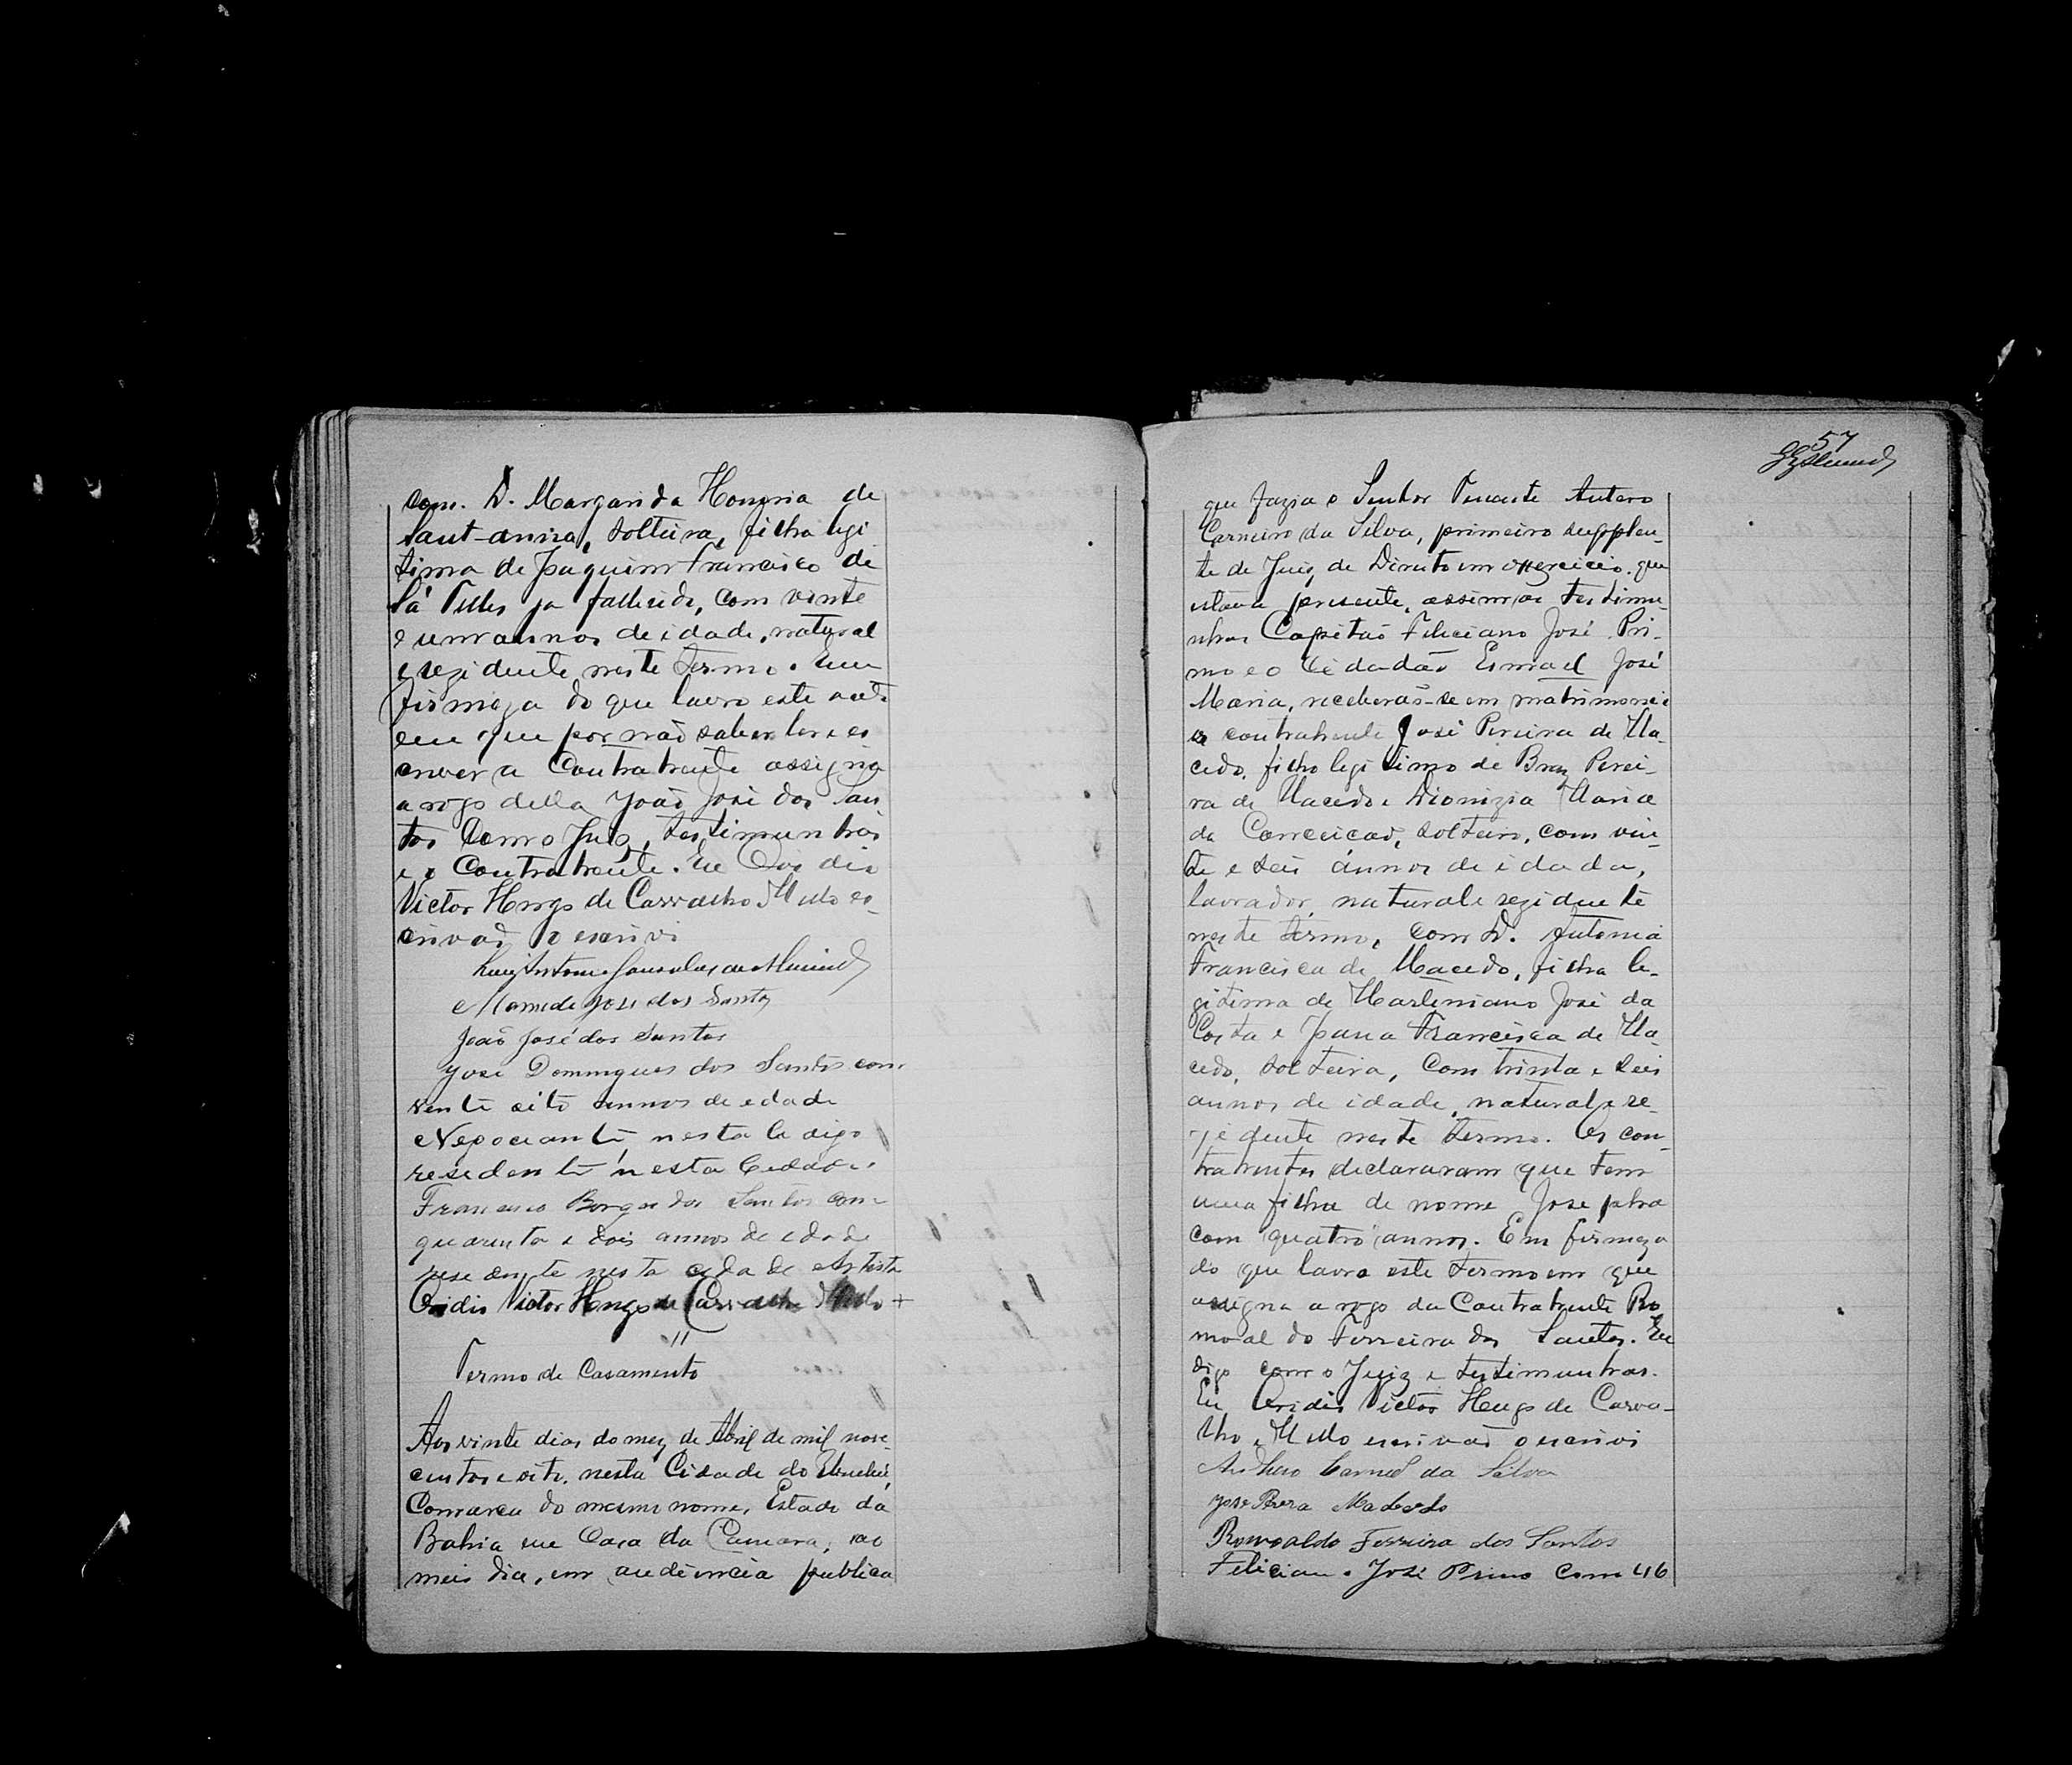 com. D. Margarida Honoria de
Sant-anna, solteira, filha legi
tima de Joaquim Francisco de
Sá Telles ja fallecido, com vinte
e um annos de idade, natural
e rezidente neste termo. Em
firmeza do que lavro este acto
em que por não saber ler e es
crever a Contratrente assigna
a rogo della João José dos San
tos Como Juiz, testimunhas
e o Contratrente. Eu
Victor Hugo de Carvalho Mello es-
crivaõ o escrivi
Luiz Antonio Gonsalves de Almeida
Mamede José dos Santos
João José dos Santos
José Domingues dos Santos com
vente oito annos de edade
Negociante nesta C digo
residente nesta Cidade.
Francisco Borges dos Santos com
quarenta e dois annos de edade
residente nesta cidade Artista
Victor Hugo de Carvalho Mello +
"
Termo de Casamento
Aos vinte dias do mez de Abril de mil nove-
centos e oito, nesta Cidade do
Comarca do mesmo nome, Estado da
Bahia em Casa da Camara, ao
meio dia, em audiencia publica
57
que fazia o Senhor Tenente Antero
Carneiro da Silva, primeiro supplen-
te de Juiz de Direito em exercicio. que
estava presente, assim as testimu-
nhas Capitaõ Feliciano José Pri-
mo e o Cidadão Esmael José
Maria, receberaõ-se em matrimonio
o contratrente José Pereira de Ma-
cedo, filho legitimo de Braz Perei-
ra de Macedo e Dionizia Maria
da Conceicaõ, solteiro, com vin-
te e seis annos de idade,
lavrador, natural e rezidente
neste termo, com D. Antonia
Francisca de Macedo, filha le-
gitima de Marteniano José da
Costa e Joana Francisca de Ma-
cedo, solteira, com trinta e seis
annos de idade, natural e re-
zidente neste termo. Os con-
tratrentes declararam que tem
uma filha de nome Josepha
com quatro annos. Em firmeza
do que lavro este termo em que
assigna a rogo da Contratrente Ro
moaldo Ferreira dos Santos. Eu
digo com o Juiz e testimunhas.
Eu Victor Hugo de Carva-
lho e Mello escrivaõ o escrivi
Carneiro da Silva
José Macedo
Romoaldo Ferreira dos Santos
Feliciano José Primo com 46